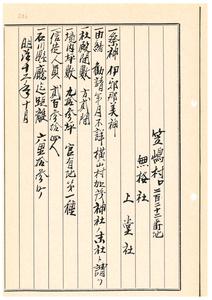 笠嶋村ロ二百二十三番地
無格社
上棠社
一祭神 伊邪那美神
一由緒 勧請年月不詳横山村加茂神社ノ末社ト称ス
一社殿間数 方弐間
一境内坪数 九拾参坪 官有地第一種
一信徒人員 貳百参拾四人
一石川県廳迄距離 六里拾参丁
明治十三年十月